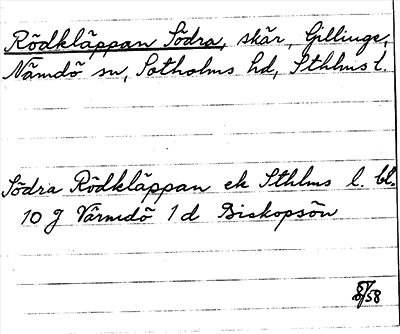 Rödkläppan Södra, skär, Gillinge,
Nämdö sn, Sotholms hd, Sthlms l.
Södra Rödkläppan ek Sthlms l. bl.
10 g Värmdö 1 d Biskopsön
58